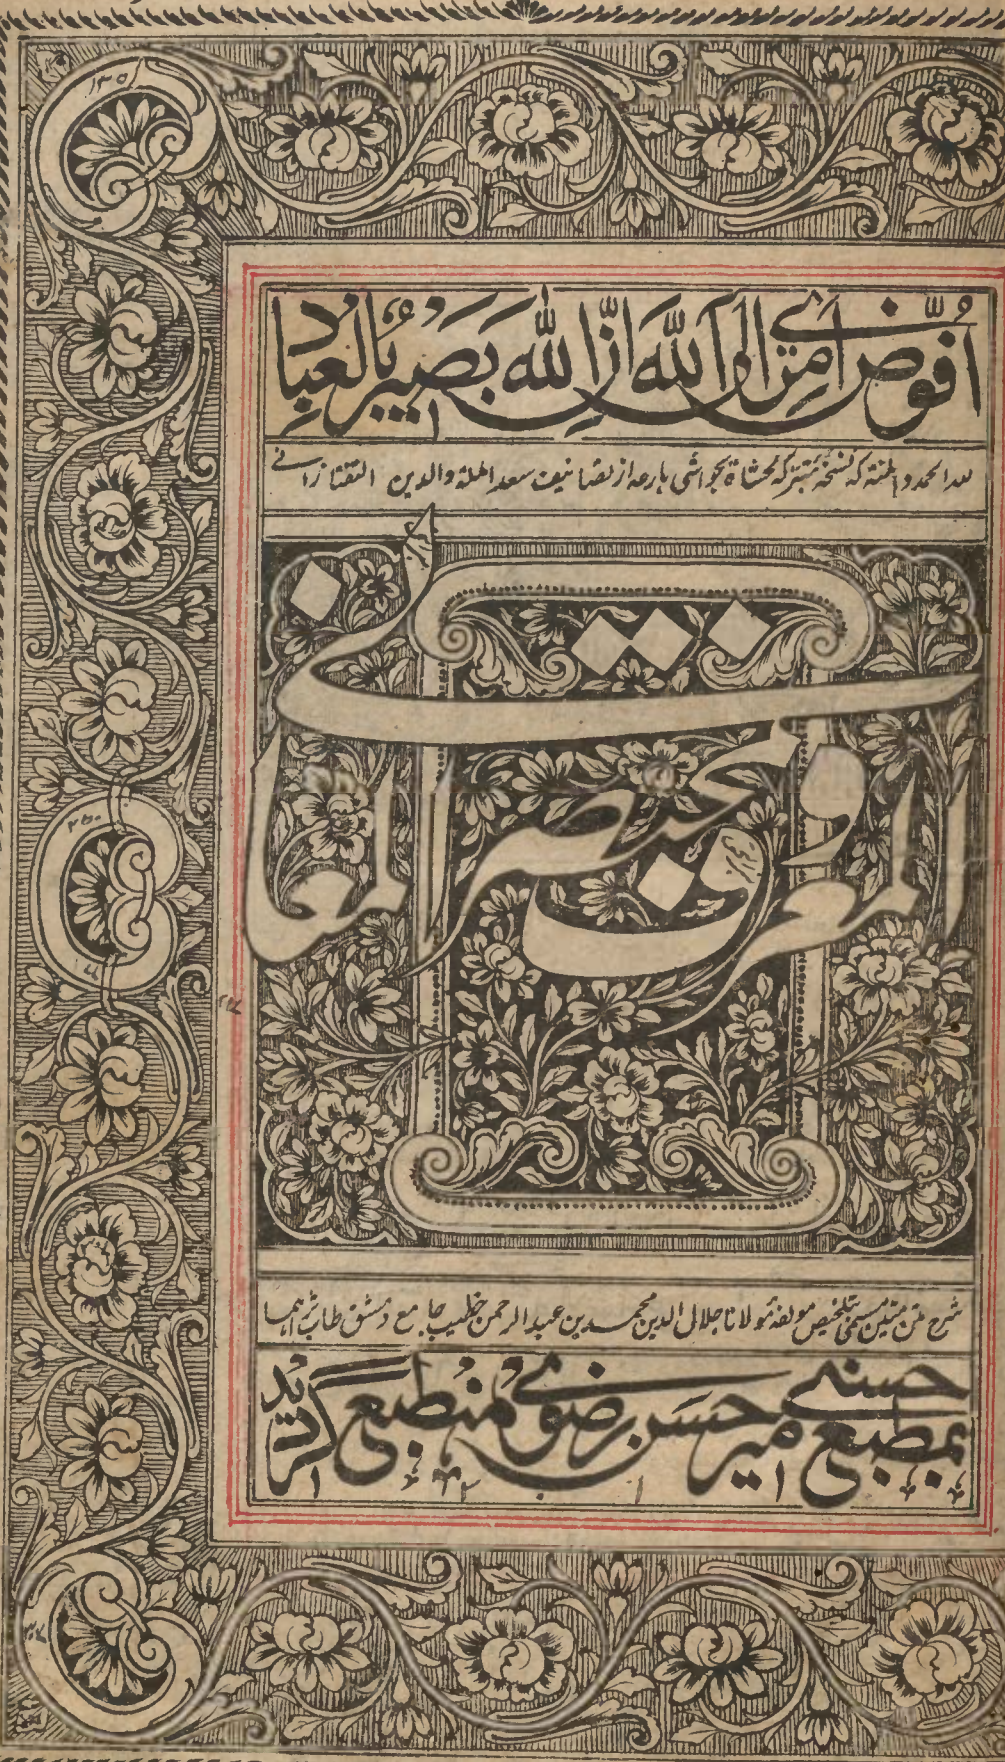 اُفَوِّضُ اَمْرِیْ اِلَی اللّٰهِ اِنَّ اللّٰهَ بَصِیْرٌۢ بِالْعِبَادِ
لله الحمد والمنة که نسخه متبرکه محشاة بحواشی بارعه از تصانیف سعد الملة والدین التفتازانی
المعروف بمختصر المعانی
شرح متن متین مسمی بتلخیص مولفه مولانا جلال الدین محمد بن عبد الرحمن خطیب جامع دمشق طاب ثراهما
بمطبع حسنی میر حسن رضوی منطبع گردید